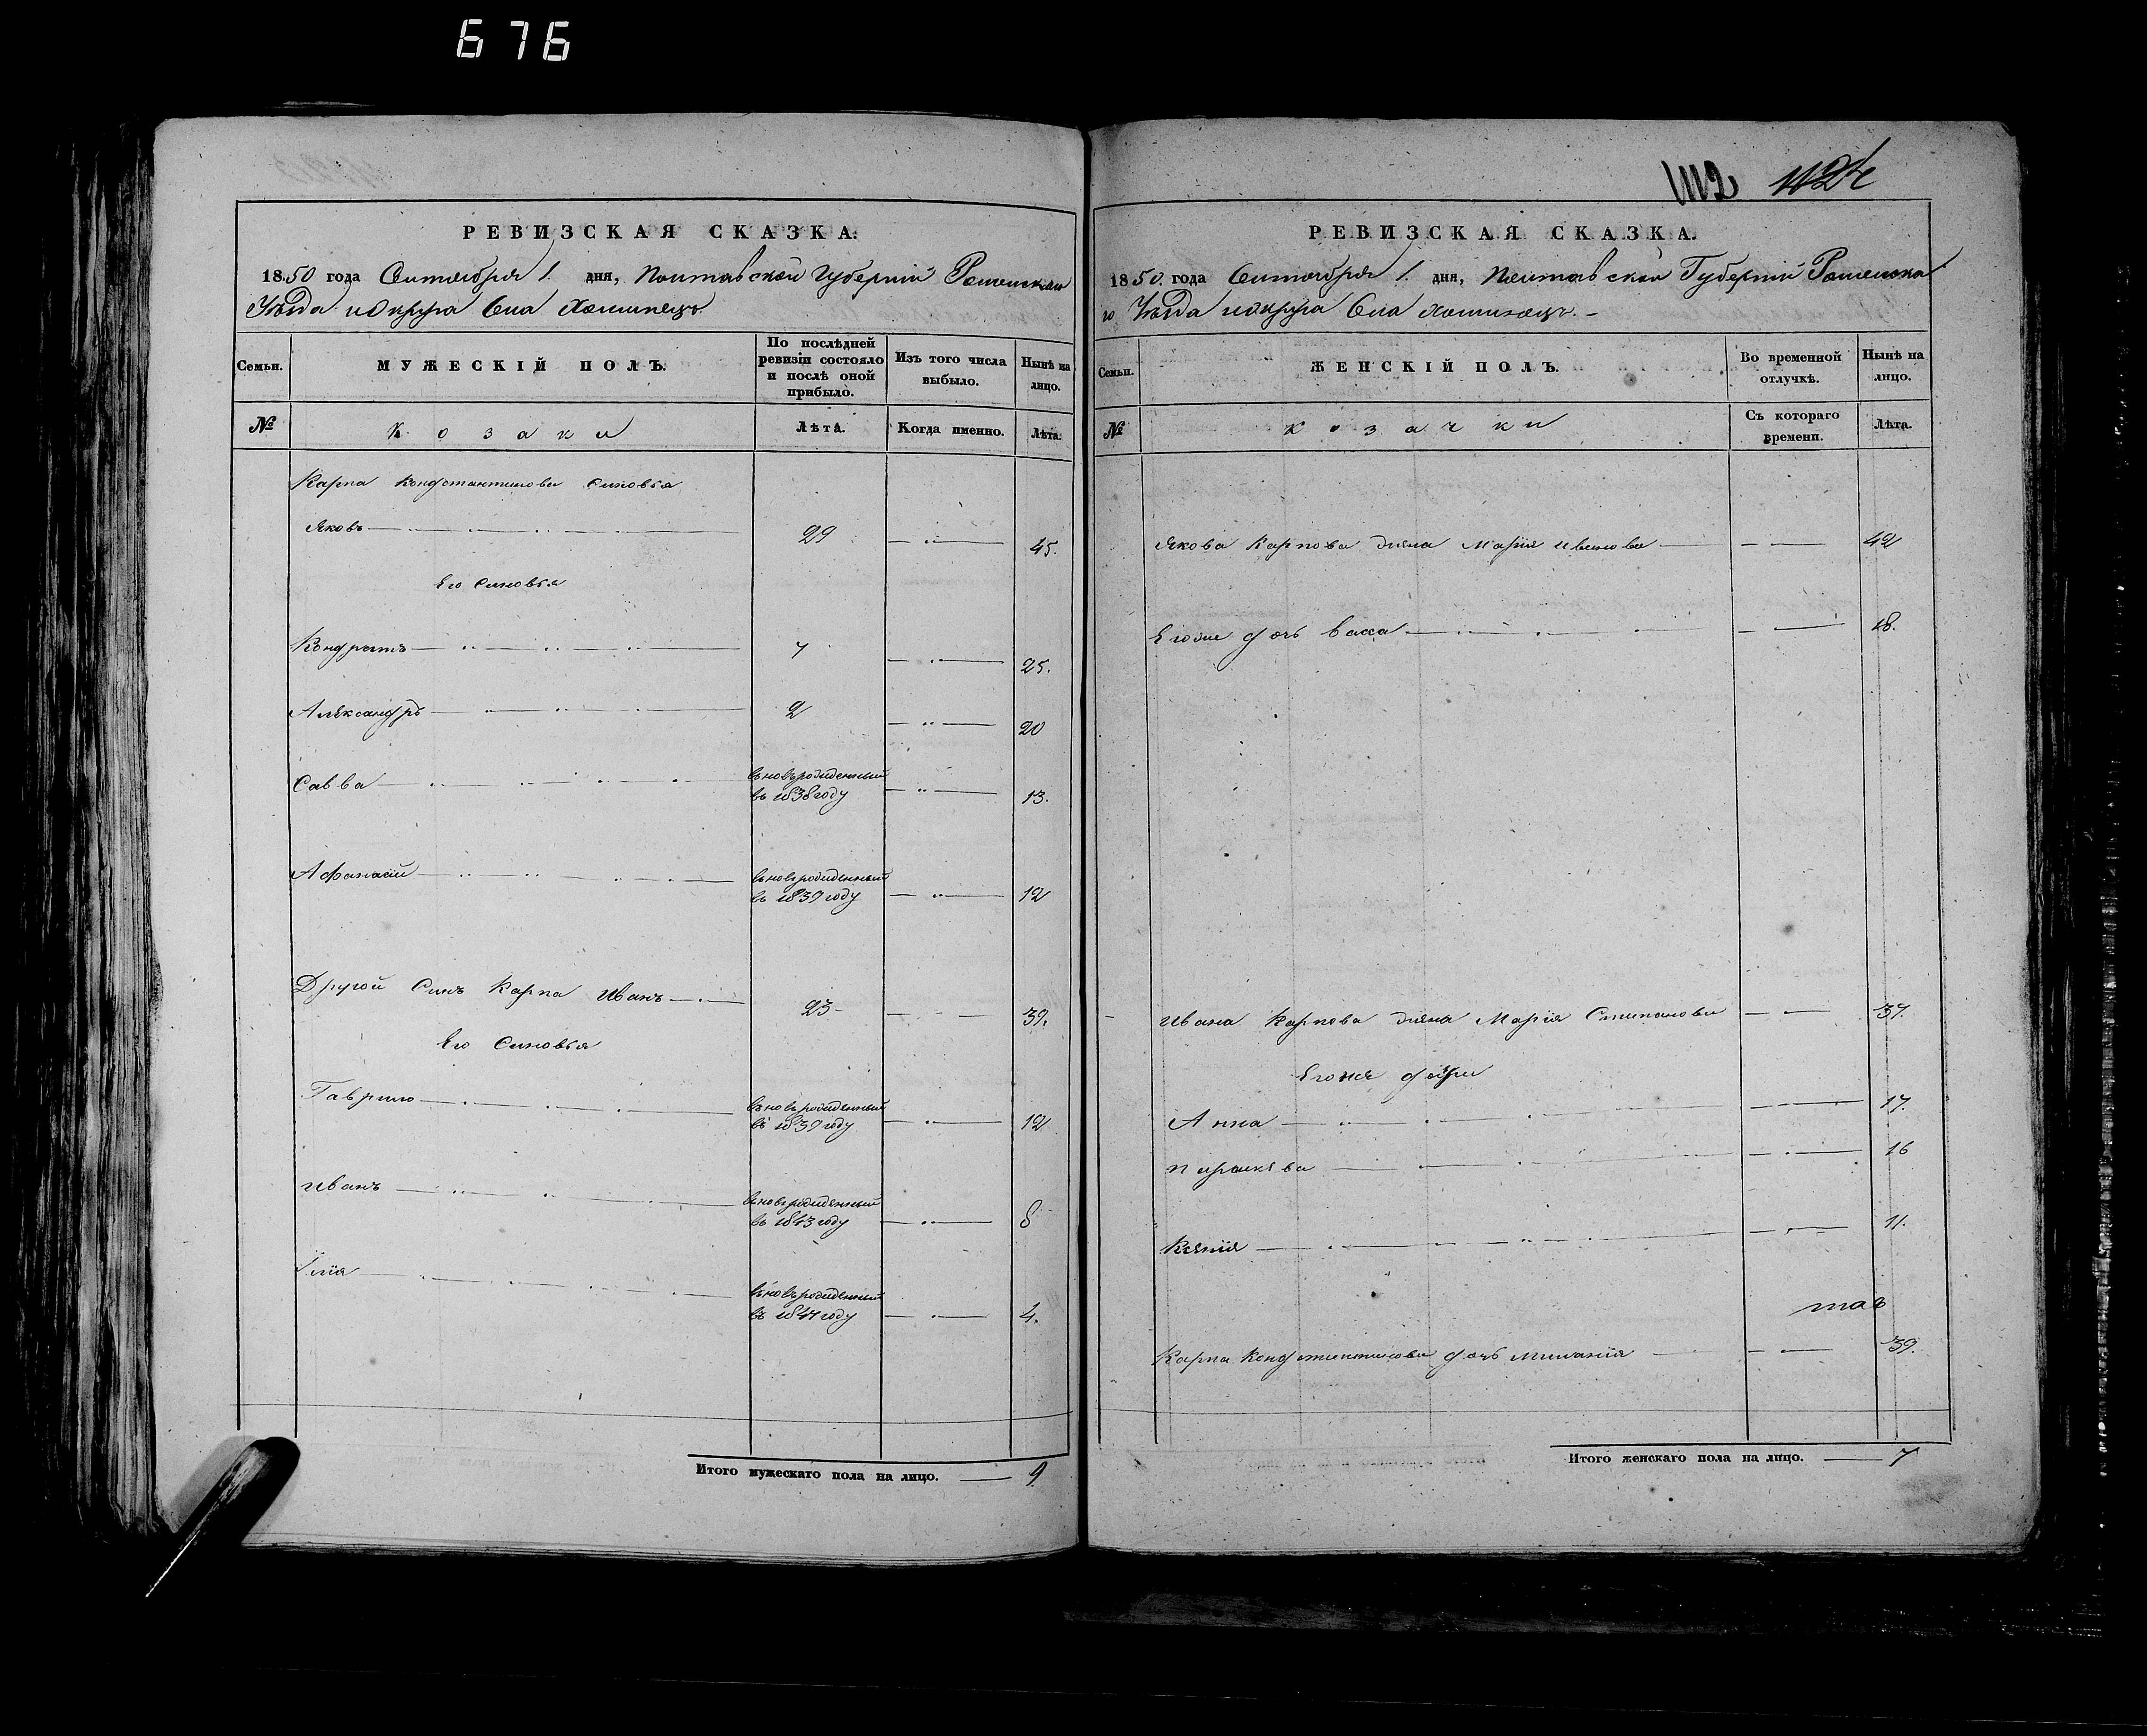 676
1112 1124
РЕВИЗСКАЯ СКАЗКА.
1850 года Октября 1. дня, Полтавской Губерніи Роменскаго
Уѣзда и Округа Села
Семьи.
МУЖЕСКІЙ ПОЛЪ.
По послѣдней ревизіи состояло и послѣ оной прибыло.
Изъ того числа выбыло.
Нынѣ на лицо.
№
Козаки
Лѣта.
Когда именно.
Лѣта.
Карпа Констаптинова Синовья
Яковъ 29 45.
Его Синовья
Кондратъ 7 25.
Александръ 2 20
Савва вновьрожденный
въ 1838 году 13.
Афанасій вновьрожденный
въ 1839 году 12
Другой Синъ Карпа Иванъ 23 39.
Его Синовья
Гаврило вновьрожденный
въ 1839 году 12
Иванъ вновьрожденный
въ 1843 году 8
Ілія вновьрожденный
въ 1847 году 4.
Итого мужескаго пола на лицо. 9.
РЕВИЗСКАЯ СКАЗКА.
1850. года Октября 1. дня, Полтавской Губерніи Роменска
го Уѣзда и Округа Села
Семьи.
ЖЕНСКІЙ ПОЛЪ.
Во временной отлучкѣ.
Нынѣ на лицо.
№
козачки
Съ котораго времени.
Лѣта.
Якова Карпова жена Марія Иванова 42
Егоже дочь Васса 18.
Ивана Карпова жена Марія Степанова 37.
Егоже дочери
Анна 17.
Параскева 16
Ксенія 11.
Карпа Константинова дочь Миланія 39.
Итого женскаго пола на лицо. 7